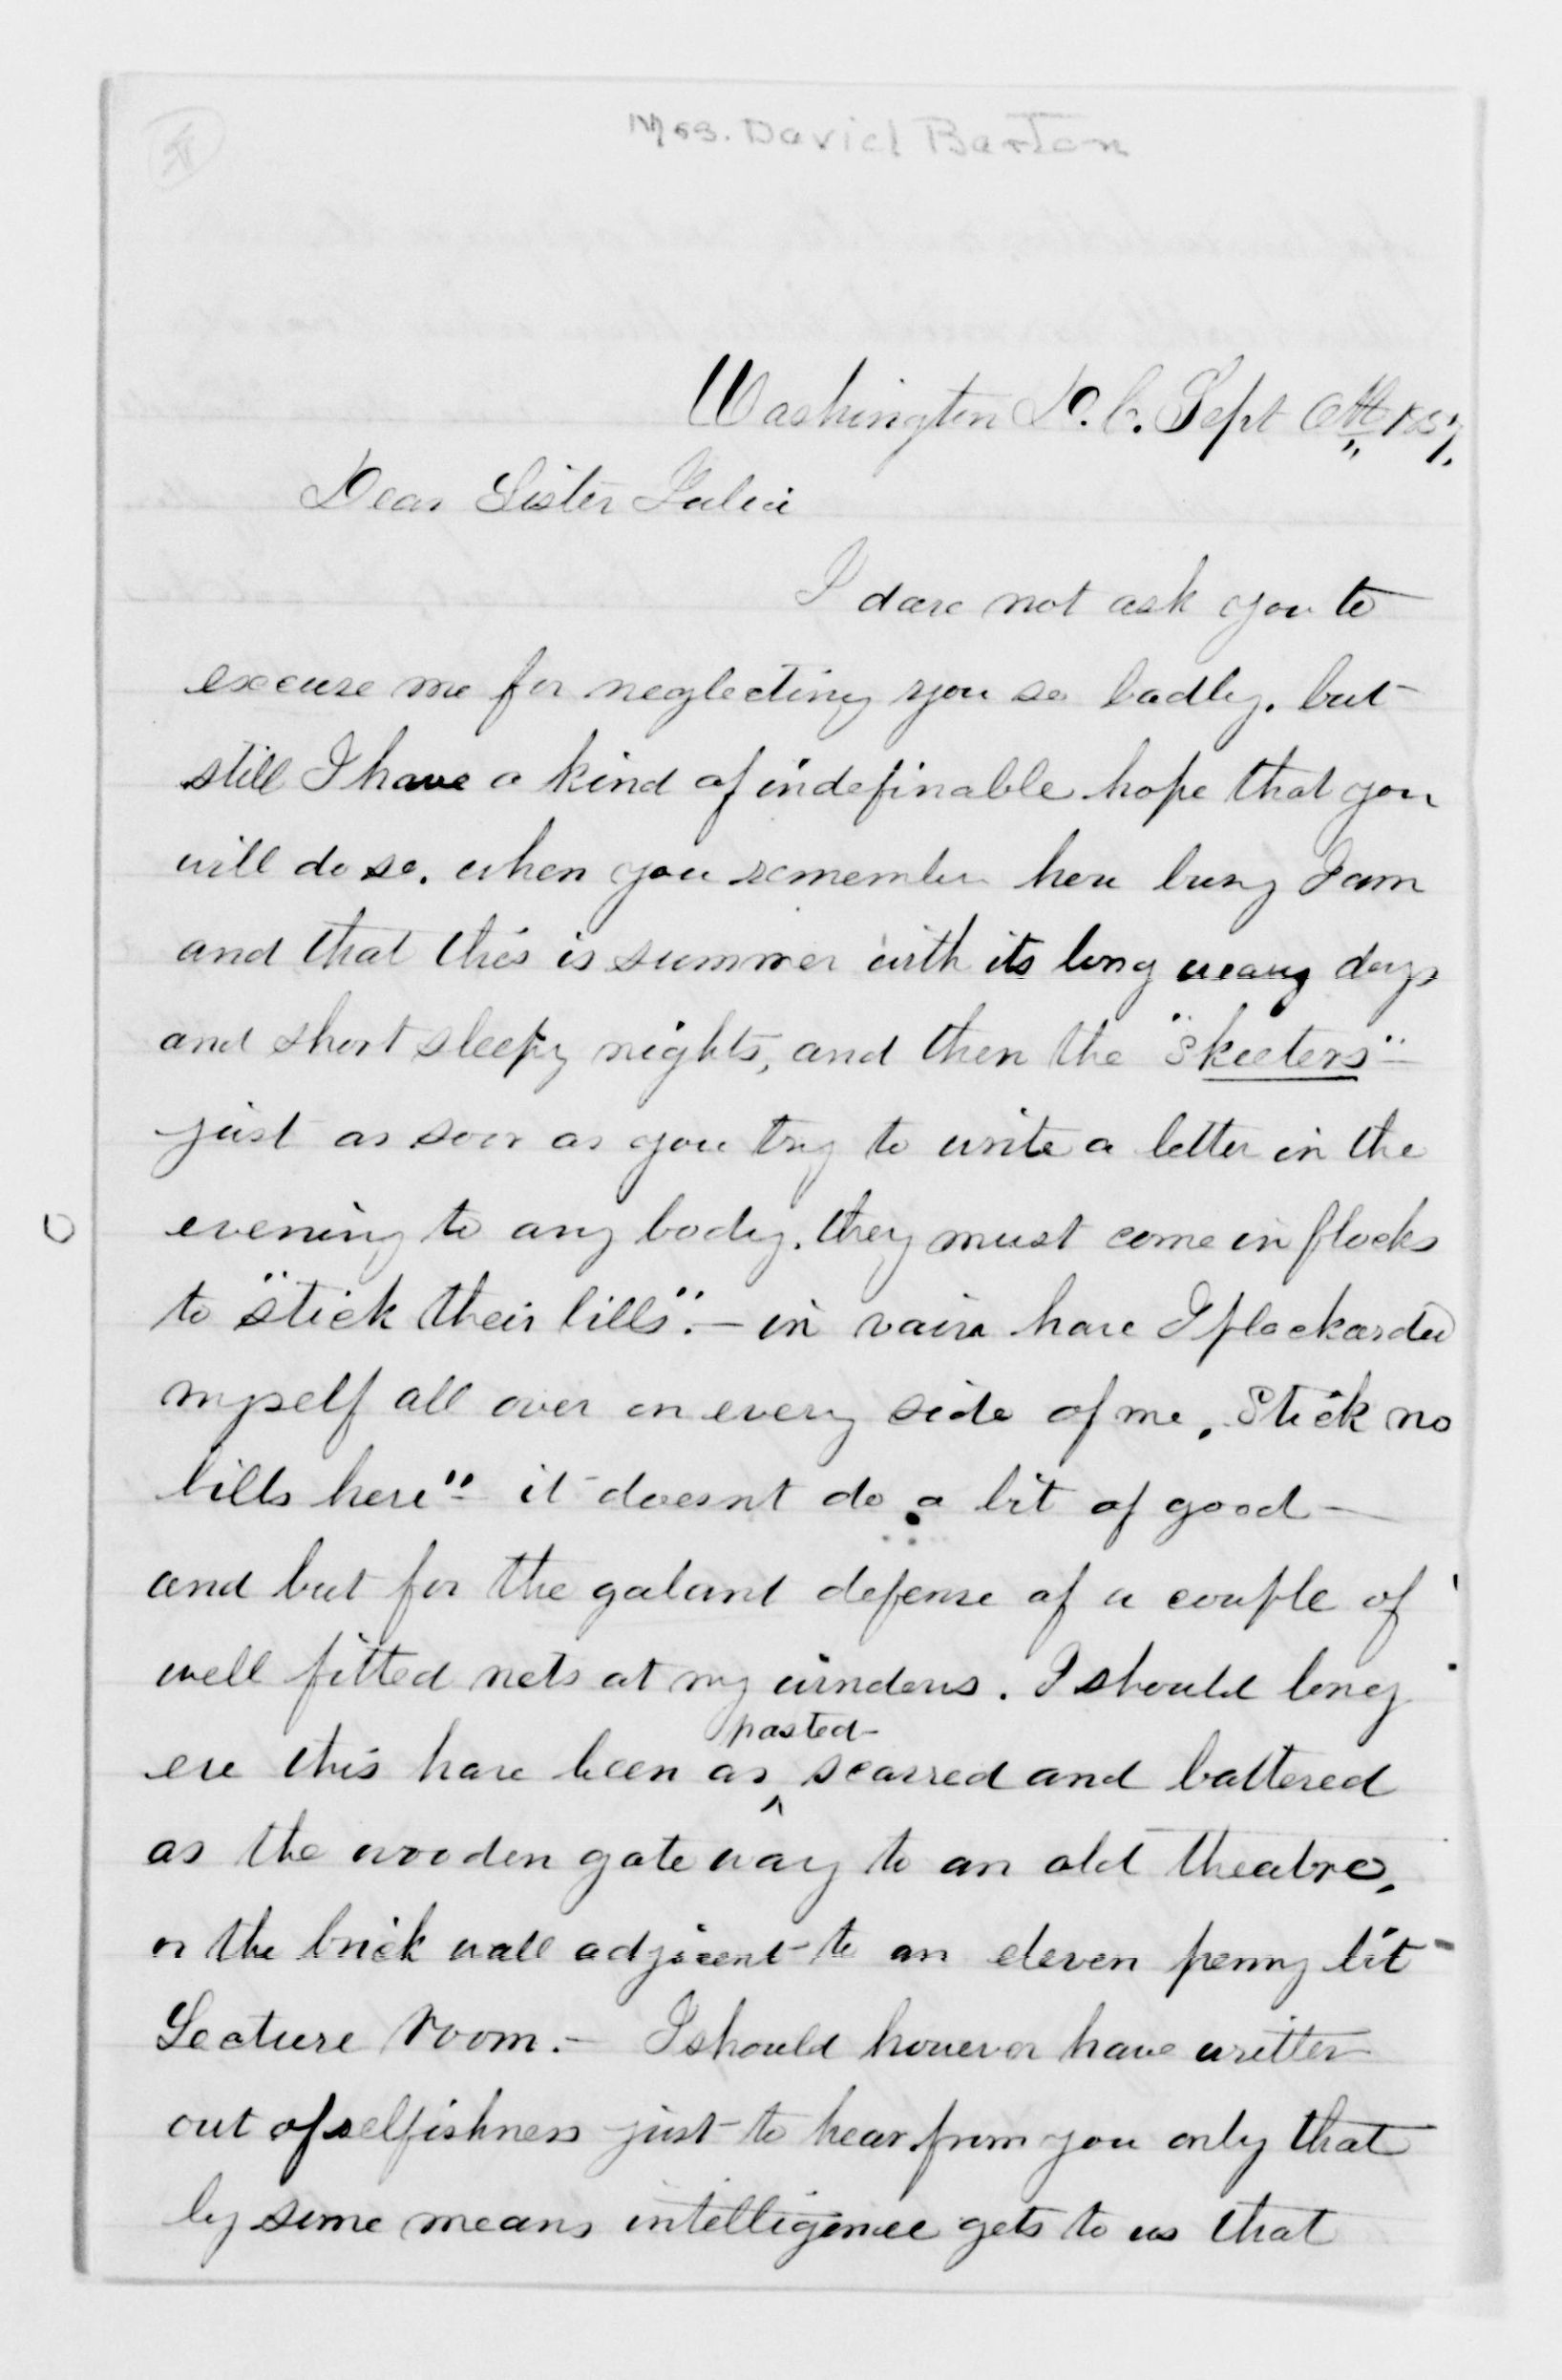 Mrs. David Barton
Washington D.C. Sept 6th 1857.
Dear Sister Julia
I dare not ask you to
excuse me for neglecting you so badly. but
still I have a kind of indefinable hope that you
will do so. when you remember how busy I am
and that this is summer with its long weary days
and short sleepy nights, and then the "Skeeters"-
just as soon as you try to write a letter in the
evening to any body. they must come in flocks
to "stick their bills". - in vain have I plackarded
myself all over on every side of me, Stick no
bills here"- it doesnt do a bit of good -
and but for the galant defense of a couple of
well fitted nets at my windows. I should long
ere this have been as ^pasted scarred and battered
as the wooden gate way to an old theatre,
or the brick wall adjacent to an eleven penny bit
Lecture room. - I should however have written
out of selfishness just to hear from you only that
by some means intelligence gets to us that